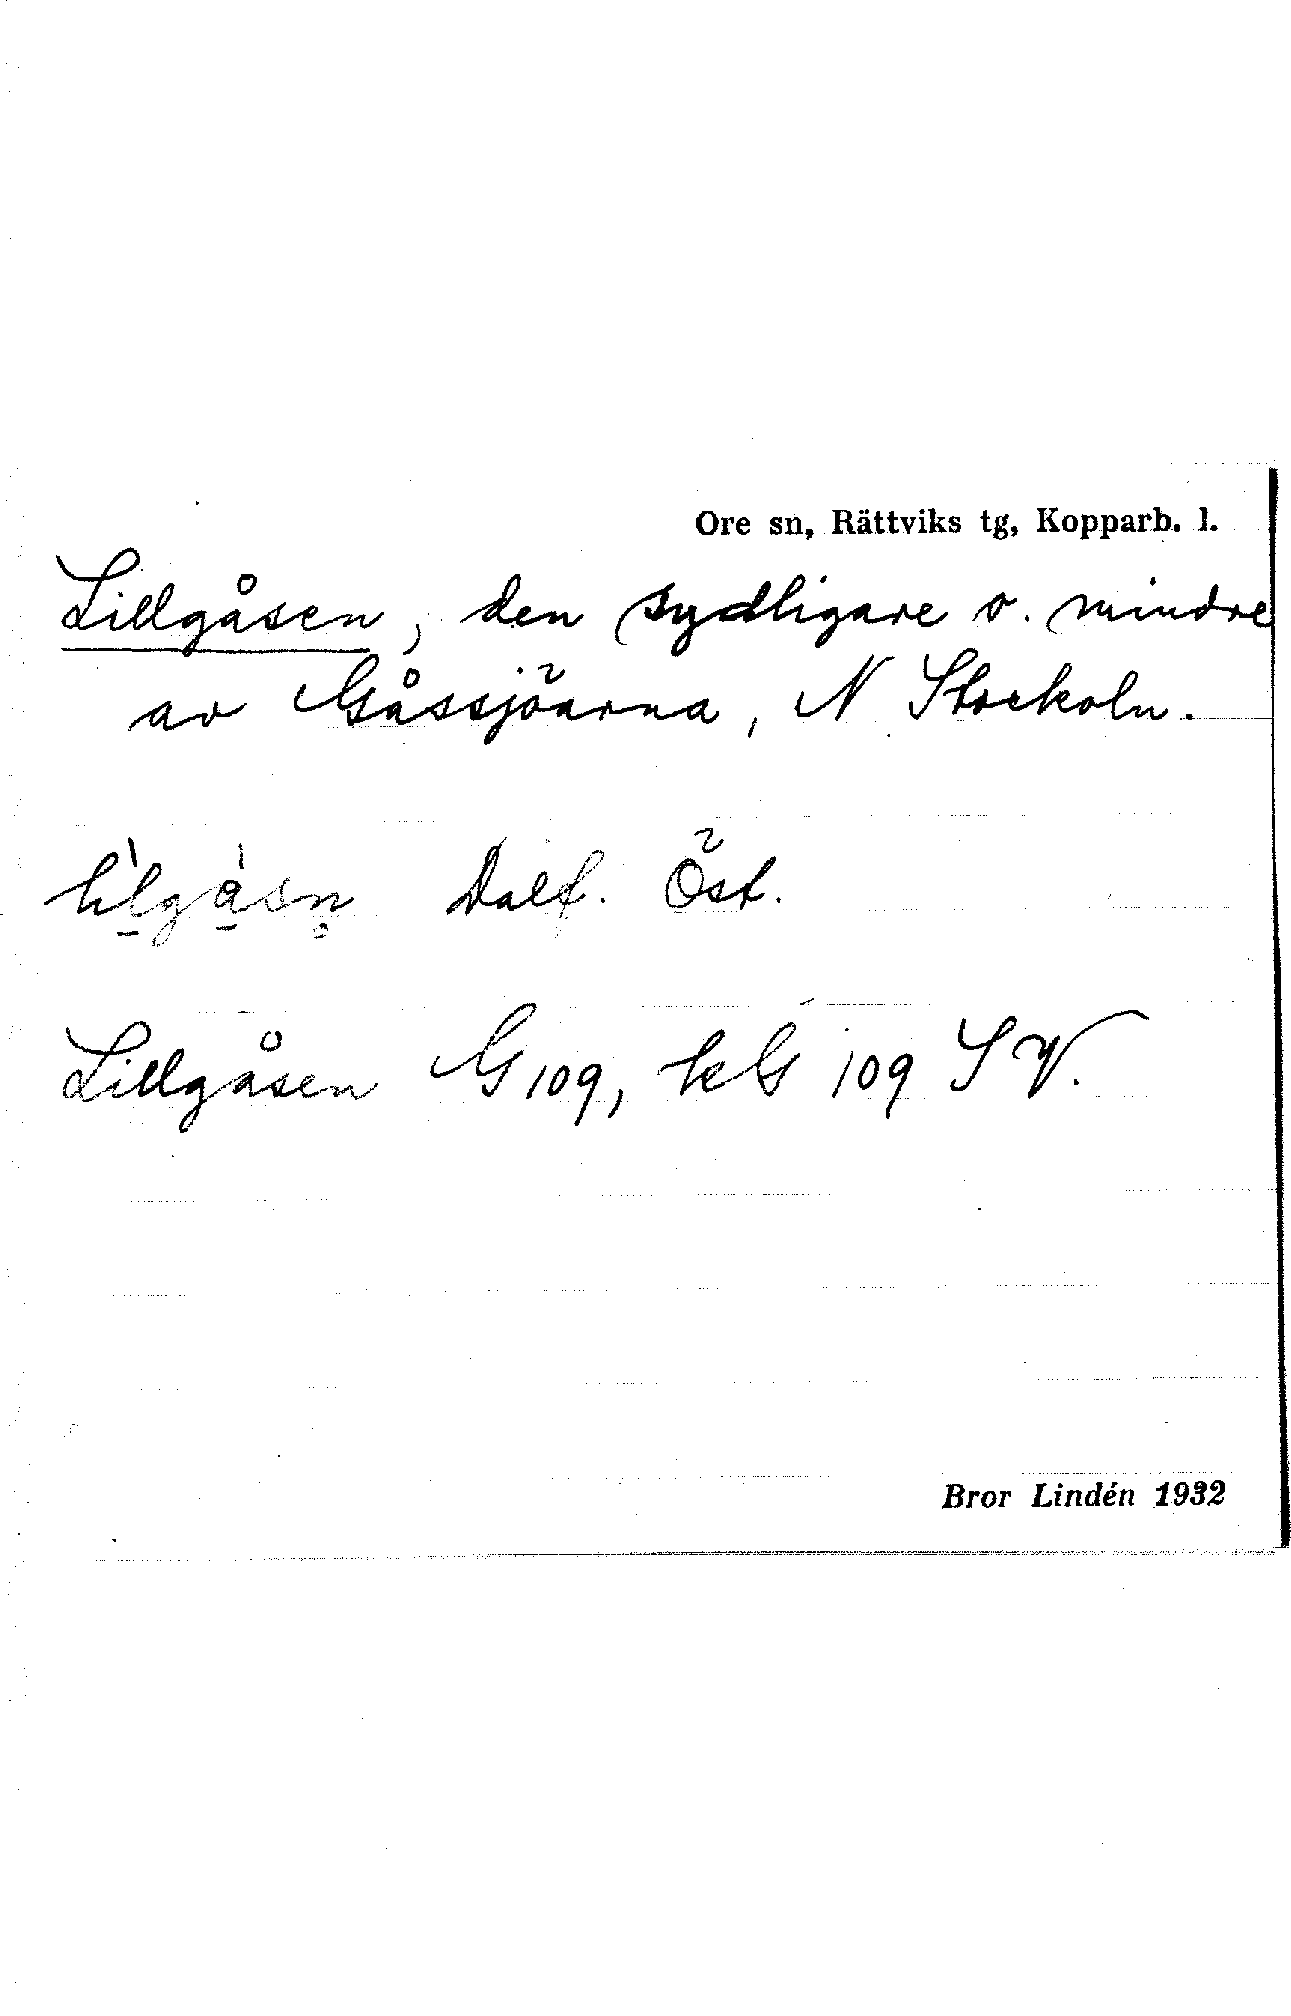 Ore sn, Rättviks tg, Kopparb. l.
Lillgåsen, den sydligare o. mindre
av Gåssjöarna, N Stockoln.
Dalf. Öst.
Lillgåsen G 109, kG 109 SV.
Bror Lindén 1932